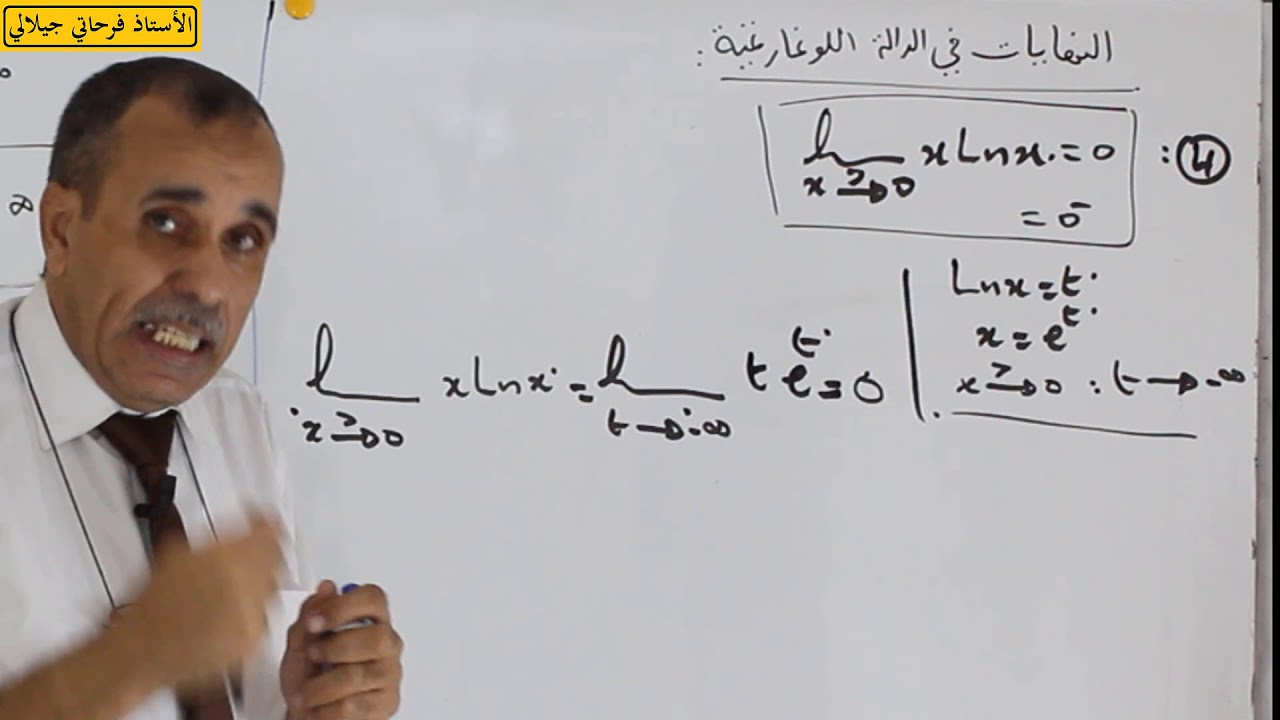 الأستاذ فرحاتي جيلالي
النهايات في الدالة اللوغارتمية :
④ : lim x Ln x = 0
x >→ 0
= 0⁻
Ln x = t
x = e^t
x >→ 0 : t → -∞
lim x Ln x = lim t e^t = 0
x >→ 0 t → -∞
∞